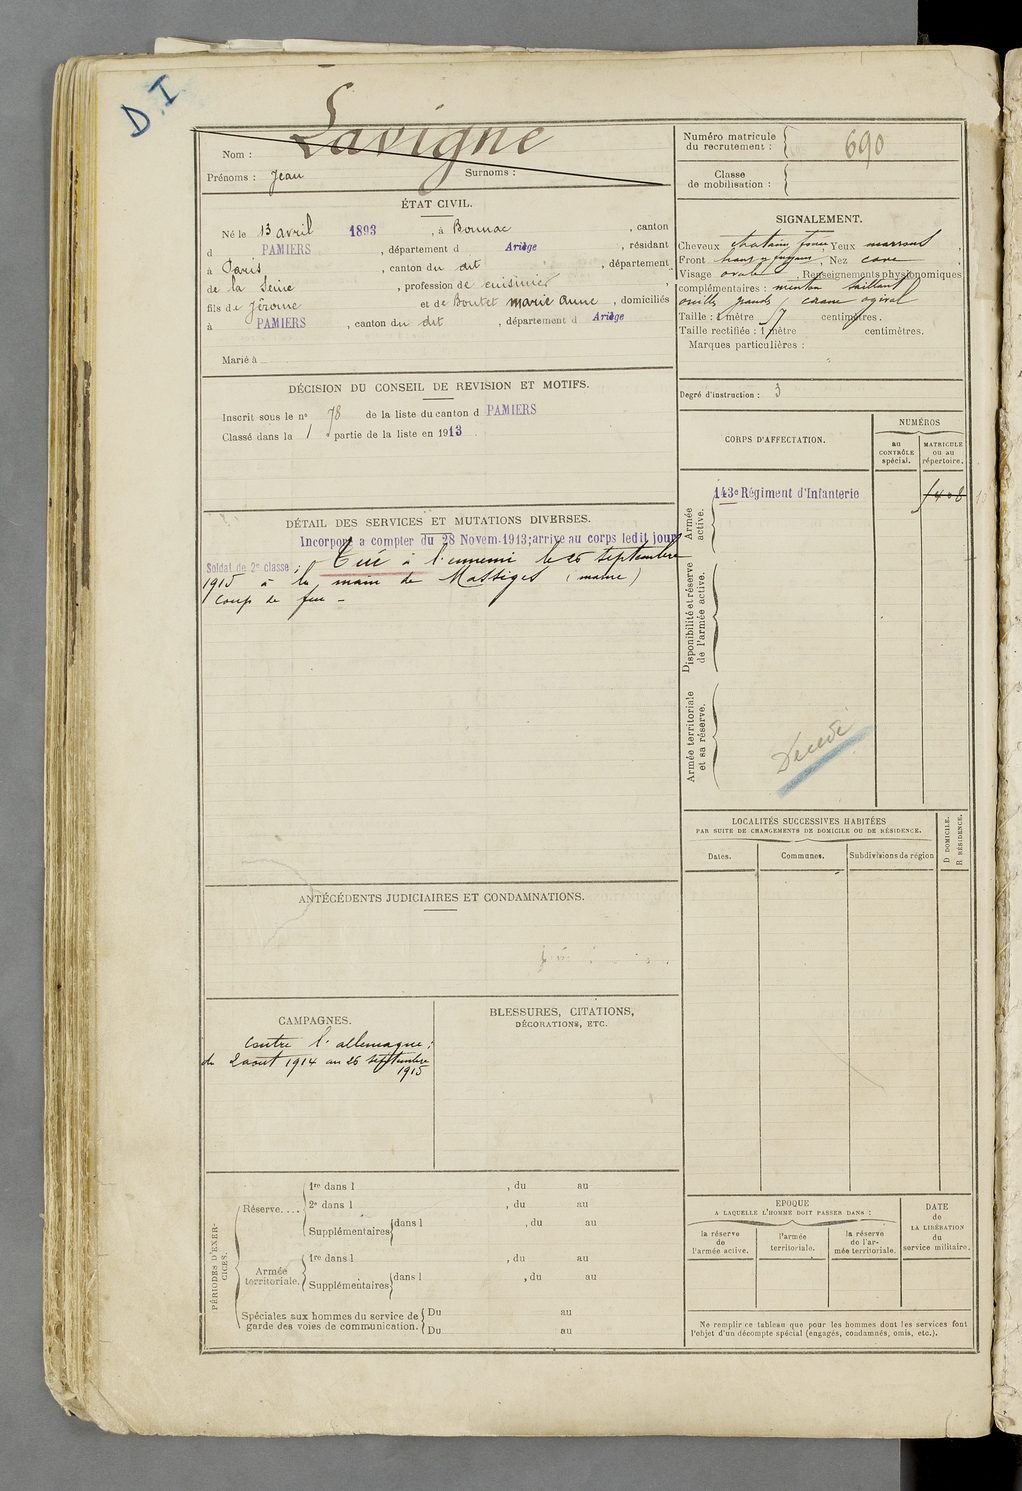 D.I
Nom : Lavigne
Prénoms : Jean Surnoms :
Numéro matricule
du recrutement : 690
Classe
de mobilisation :
ÉTAT CIVIL.
Né le 13 avril 1893, à Bonnac, canton
d PAMIERS, département d Ariège, résidant
à Paris, canton du dit, département
de la Seine, profession de cuisinier,
fils de Jérome et de Boutet marie anne, domiciliés
à PAMIERS, canton du dit, département d Ariège
Marié à
SIGNALEMENT.
Cheveux chatain foncé Yeux marrons,
Front haut, Nez cave
Visage ovale, Renseignements physionomiques
complémentaires : menton saillant
oreilles grands, crane ogival
Taille : 1 mètre 57 centimètres.
Taille rectifiée : 1 mètre centimètres.
Marques particulières :
Degré d'instruction : 3
DÉCISION DU CONSEIL DE REVISION ET MOTIFS.
Inscrit sous le no 78 de la liste du canton d PAMIERS
Classé dans la 1 partie de la liste en 1913
CORPS D'AFFECTATION.
NUMÉROS
au
CONTRÔLE
spécial.
MATRICULE
ou au
répertoire.
Armée
active.
143e Régiment d'Infanterie
Disponibilité et réserve
de l'armée active.
Armée territoriale
et sa réserve.
Décédé
DÉTAIL DES SERVICES ET MUTATIONS DIVERSES.
Incorporé a compter du 28 Novem. 1913; arrivé au corps ledit jour
Soldat de 2e classe ; Tué à l'ennemi le 26 septembre
1915 à la main de Massiges (marne)
coup de feu -
LOCALITÉS SUCCESSIVES HABITÉES
PAR SUITE DE CHANGEMENTS DE DOMICILE OU DE RÉSIDENCE.
Dates.
Communes.
Subdivisions de région
D DOMICILE.
R RÉSIDENCE.
ANTÉCÉDENTS JUDICIAIRES ET CONDAMNATIONS.
CAMPAGNES.
Contre l'allemagne :
du 2 aout 1914 au 26 septembre
1915
BLESSURES, CITATIONS,
DÉCORATIONS, ETC.
PÉRIODES D'EXER-
CICES.
Réserve....
1re dans l , du au
2e dans l , du au
Supplémentaires dans l , du au
Armée
territoriale.
1re dans l , du au
Supplémentaires dans l , du au
Spéciales aux hommes du service de
garde des voies de communication.
Du au
Du au
EPOQUE
A LAQUELLE L'HOMME DOIT PASSER DANS :
la réserve
de
l'armée active.
l'armée
territoriale.
la réserve
de l'ar-
mée territoriale.
DATE
de
LA LIBÉRATION
du
service militaire.
Ne remplir ce tableau que pour les hommes dont les services font
l'objet d'un décompte spécial (engagés, condamnés, omis, etc.).